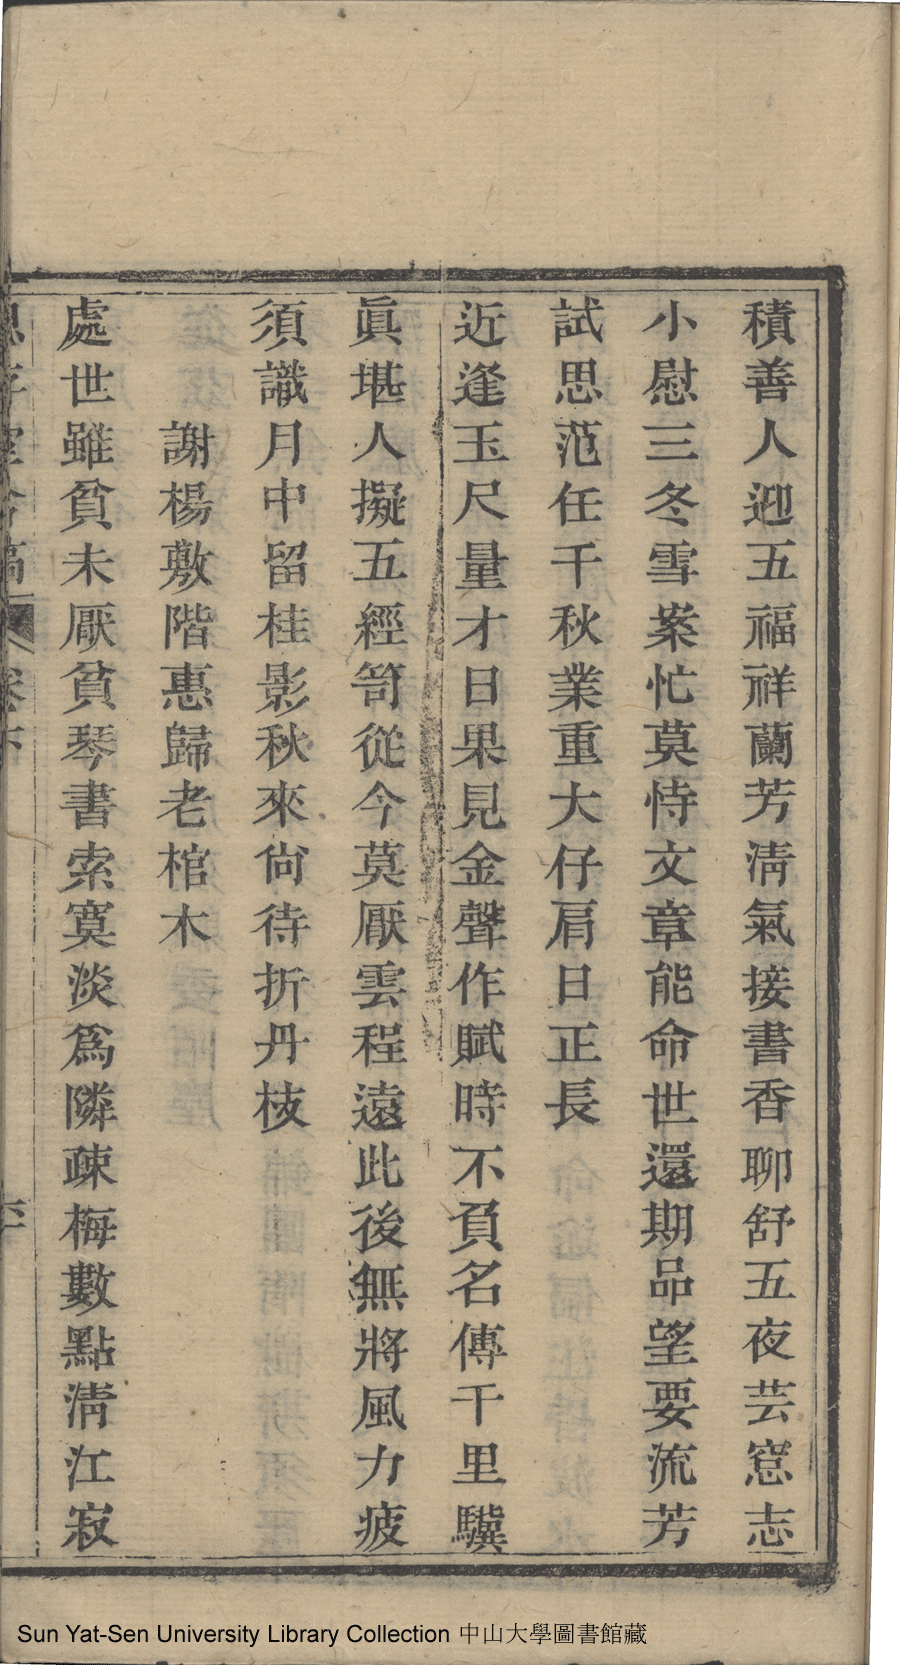 積善人迎五福祥蘭芳淸氣接書香聊舒五夜芸窓志
小慰三冬雪案忙莫恃文章能命世還期品望要流芳
試思范任千秋業重大仔肩日正長
近逢玉尺量才日果見金聲作賦時不負名傳千里驥
眞堪人擬五經笥從今莫厭雲程遠此後無將風力疲
須識月中留桂影秋來尙待折丹枝
謝楊敷階惠歸老棺木
處世雖貧未厭貧琴書索寞淡爲隣疎梅數點淸江寂
卷下
Sun Yat-Sen University Library Collection 中山大學圖書館藏